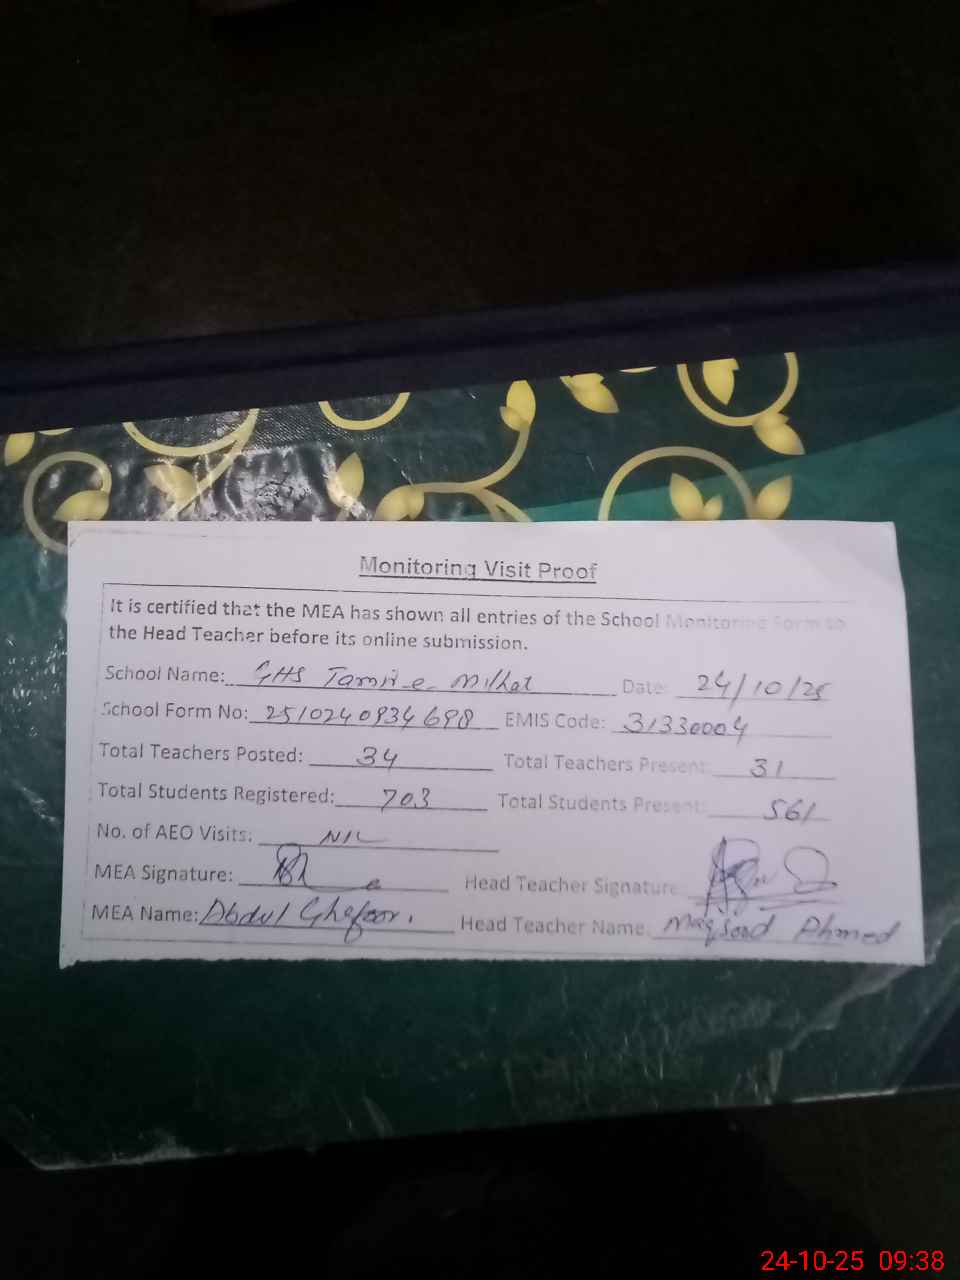 Monitoring Visit Proof
It is certified that the MEA has shown all entries of the School Monitoring Form to
the Head Teacher before its online submission.
School Name: GHS Tamir-e-Millat Date: 24/10/25
School Form No: 2510240934698 EMIS Code: 31330004
Total Teachers Posted: 34 Total Teachers Present: 31
Total Students Registered: 703 Total Students Present: 561
No. of AEO Visits: NIL
MEA Signature: Head Teacher Signature:
MEA Name: Abdul Ghafoor. Head Teacher Name: Maqsood Ahmed
24-10-25 09:38